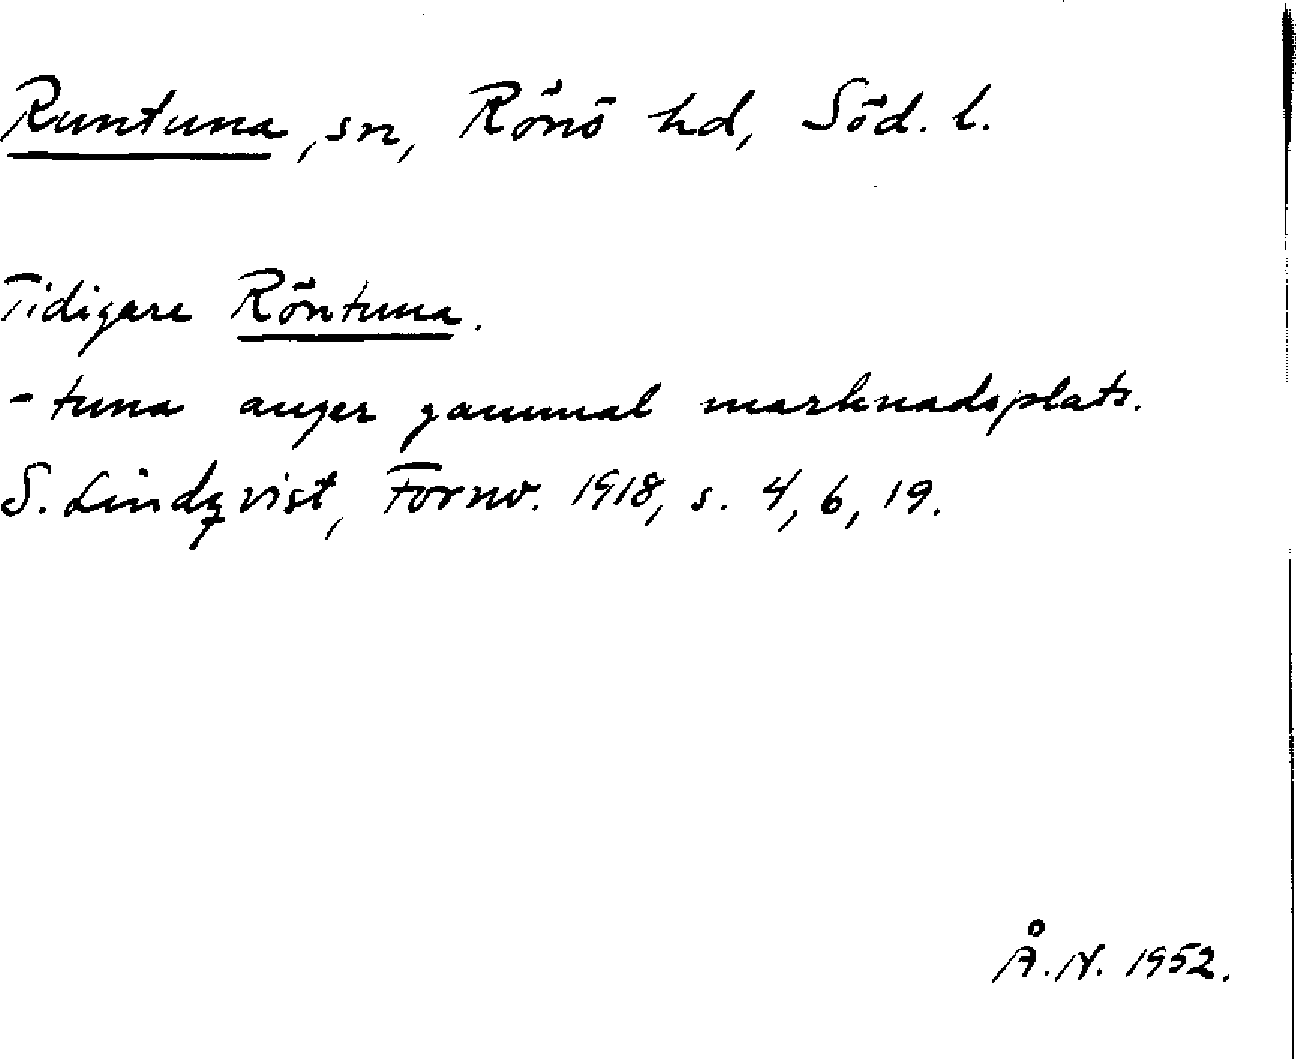 Runtuna, sn, Rönö hd, Söd. l.
Tidigare Röntuna.
-tuna anger gammal marknadsplats.
S. Lindqvist, Fornv. 1918, s. 4, 6, 19.
Å.N. 1952.